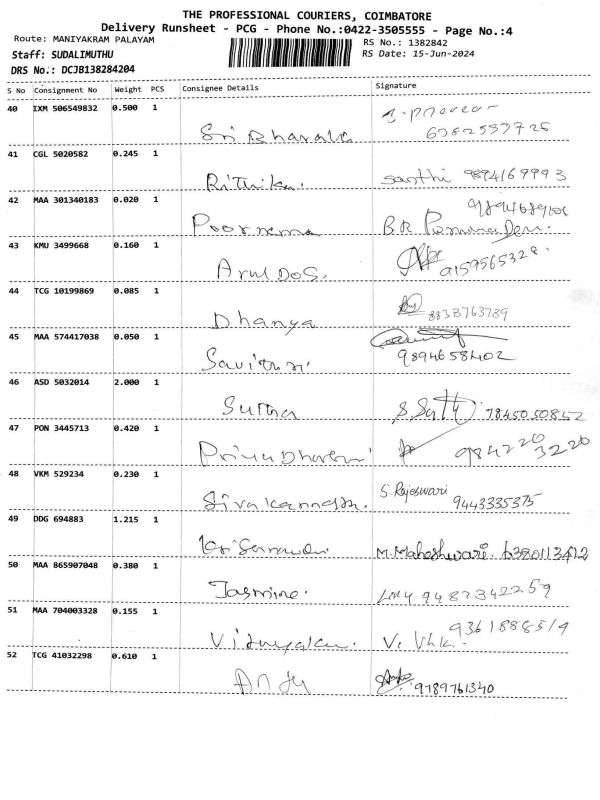 THE PROFESSIONAL COURIERS, COIMBATORE
Delivery Runsheet - PCG - Phone No.:0422-3505555 - Page No.:4
Route: MANIYAKRAM PALAYAM
RS No.: 1382842
Staff: SUDALIMUTHU
RS Date: 15-Jun-2024
DRS No.: DCJB138284204
S No Consignment No Weight PCS Consignee Details Signature
40 IXM 506549832 0.500 1
Sri
41 CGL 5020582 0.245 1
Rithika. santhi 9894169993
42 MAA 301340183 0.020 1
Poornema B.R.
43 KMU 3499668 0.160 1
Arul DOS. 9159565328.
44 TCG 10199869 0.085 1
Dhanya 8838763789
45 MAA 574417038 0.050 1
Savitri 9894658402
46 ASD 5032014 2.000 1
Sutha 7845050852
47 PON 3445713 0.420 1
9842203220
48 VKM 529234 0.230 1
S. Rajeswari
9443335375
49 DDG 694883 1.215 1
M. Maheshwari. 6380113412
50 MAA 865907048 0.380 1
Jasmine. 9487342259
51 MAA 704003328 0.155 1
9361888519
52 TCG 41032298 0.610 1
9789761340